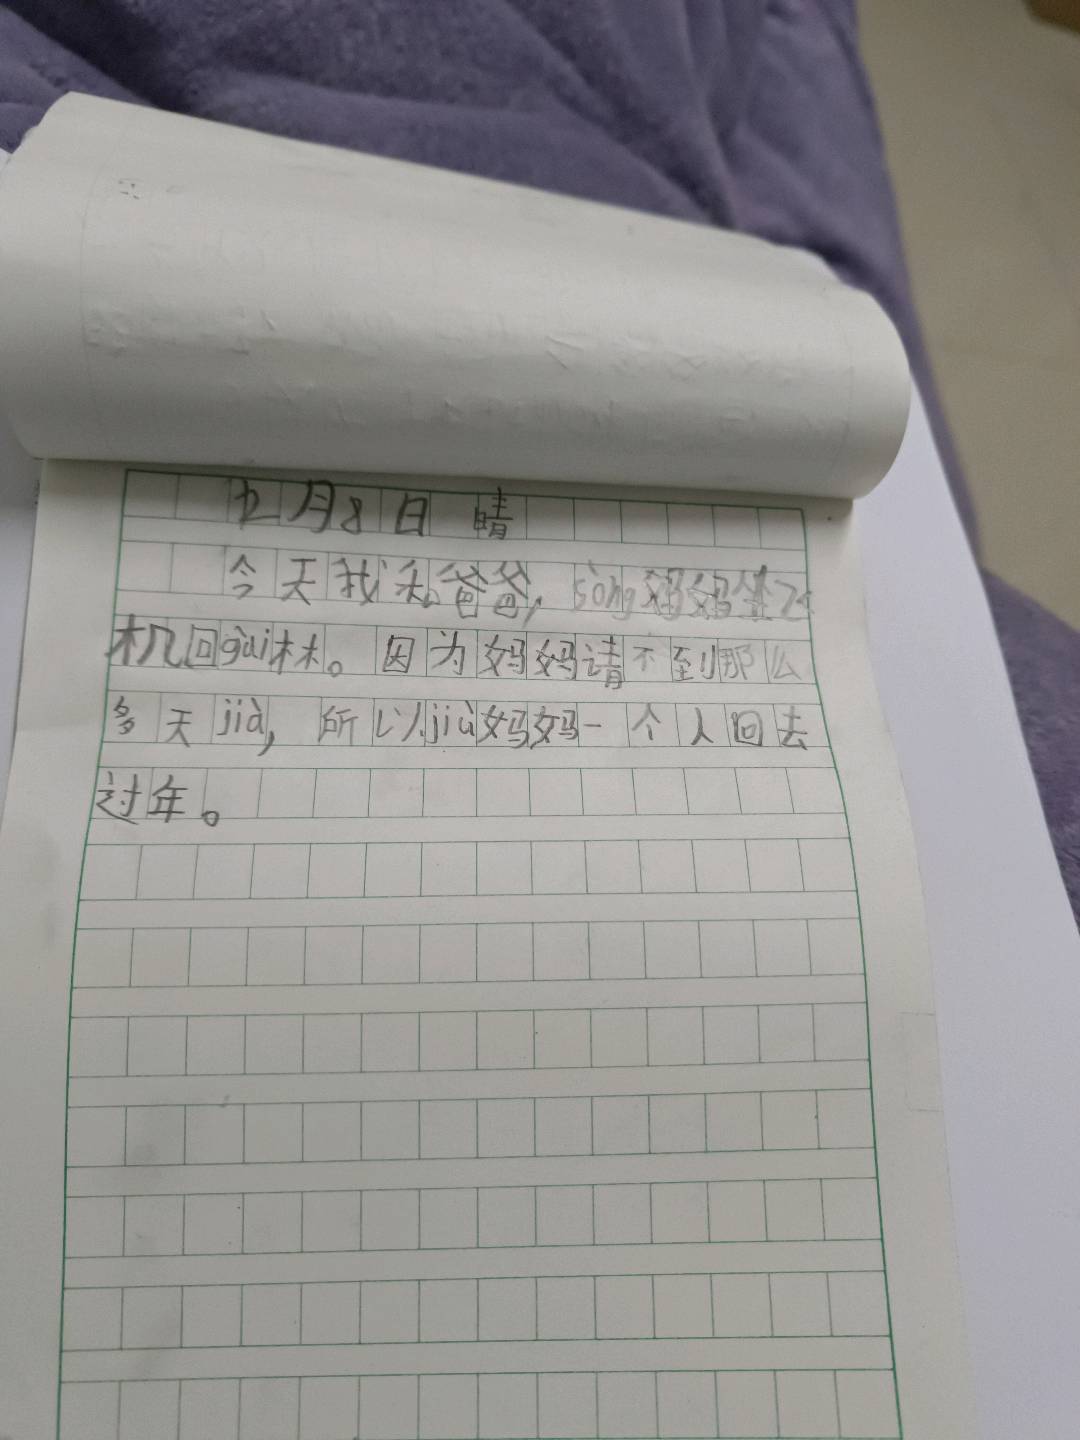 2月8日 晴
今天我和爸爸,sòng妈妈坐飞
机回gùi林。因为妈妈请不到那么
多天jià,所以jiù妈妈一个人回去
过年。